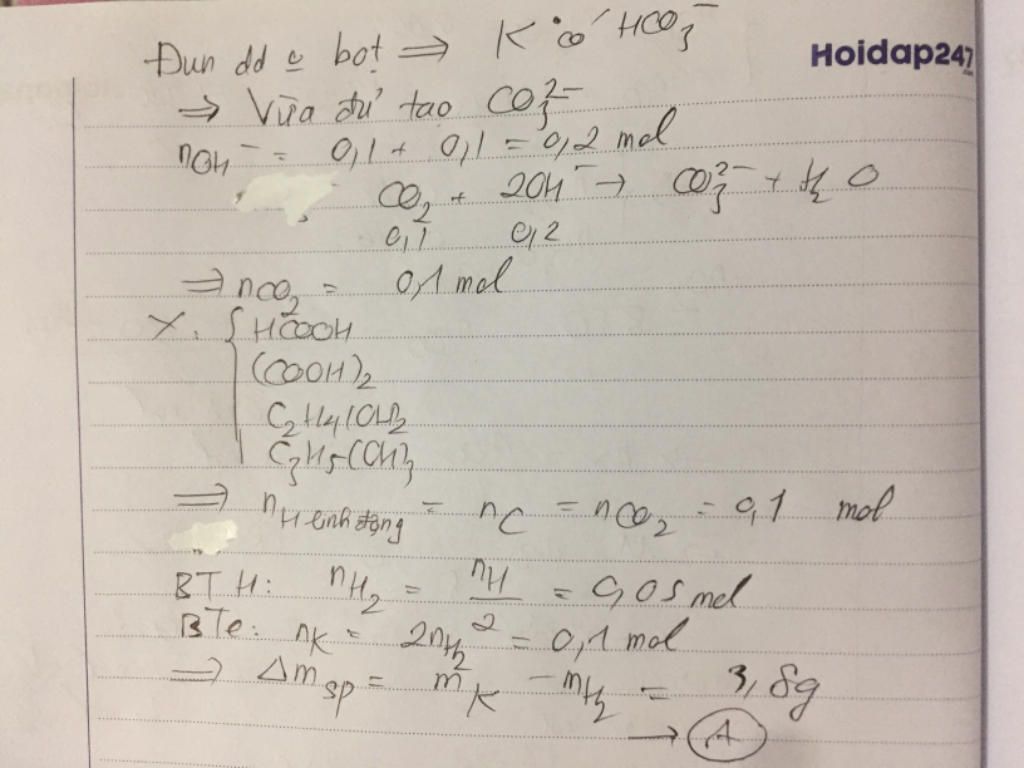 Đun dd c̲ bọt ⇒ K có HCO₃⁻
Hoidap247
⇒ Vừa đủ tạo CO₃²⁻
nOH⁻ = 0,1 + 0,1 = 0,2 mol
CO₂ + 2OH⁻ → CO₃²⁻ + H₂O
0,1 0,2
⇒ nCO₂ = 0,1 mol
X: { HCOOH
(COOH)₂
C₂H₄(OH)₂
C₃H₅(OH)₃
⇒ nH linh động = nC = nCO₂ = 0,1 mol
BT H: nH₂ = nH/2 = 0,05 mol
BTe: nK = 2nH₂ = 0,1 mol
⇒ Δm sp = mK - mH₂ = 3,8g
→ A